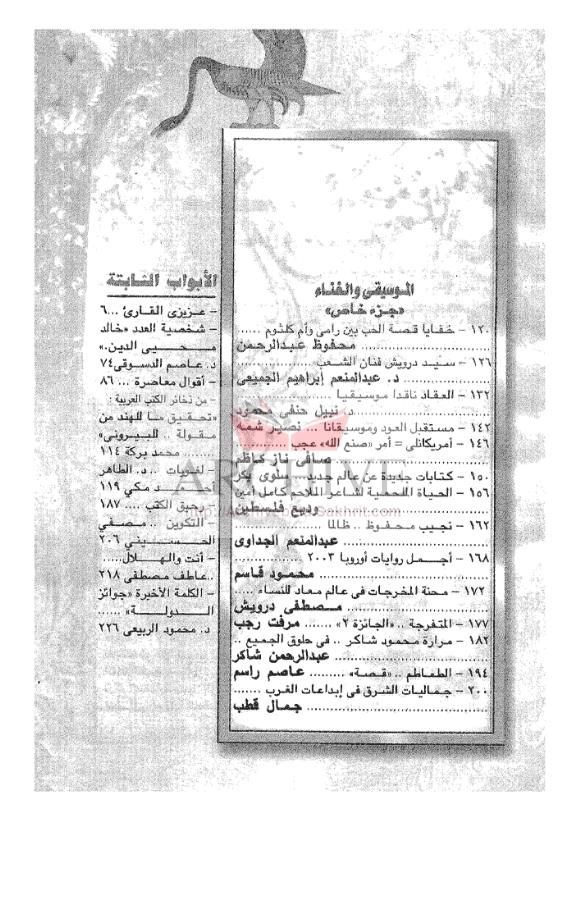 الموسيقى والغناء
«جزء خاص»
١٢٠ – خفايا قصة الحب بين رامى وأم كلثوم ......
................ محفوظ عبدالرحمن
١٢٦ – سيد درويش فنان الشعب ................
................ د. عبدالمنعم إبراهيم الجميعى
١٣٢ – العقاد ناقدا موسيقيا ................
................ د. نبيل حنفى محمود
١٤٢ – مستقبل العود وموسيقانا ... نصير شمه
١٤٦ – أمريكانلى = أمر «صنع الله» عجب ............
................ صافى ناز كاظم
١٥٠ – كتابات جديدة عن عالم جديد... سلوى بكر
١٥٦ – الحياة الملحمية لشاعر الملاحم كامل أمين
................ وديع فلسطين
١٦٢ – نجيب محفوظ .. ظالما ................
................ عبدالمنعم الجداوى
١٦٨ – أجمل روايات أوروبا ٢٠٠٣ ................
................ محمود قاسم
١٧٢ – محنة المخرجات فى عالم معاد للنساء .....
................ مصطفى درويش
١٧٧ – المتفرجة .. «الجائزة ٢» ...... مرفت رجب
١٨٢ – مرارة محمود شاكر .. فى حلوق الجميع ..
................ عبدالرحمن شاكر
١٩٤ – الطماطم .. «قصة» ......... عاصم راسم
٢٠٠ – جماليات الشرق فى إبداعات الغرب .......
................ جمال قطب
الأبواب الثابتة
– عزيزى القارئ ...٦
– شخصية العدد «خالد
محيى الدين.»
د. عاصم الدسوقى ٧٤
– أقوال معاصرة ... ٨٦
– من ذخائر الكتب العربية :
«تحقيق ما للهند من
مقولة .. للبيرونى»
........ محمد بركة ١١٤
– لغويات .. د. الطاهر
أحمد مكى ١١٩
– رحيق الكتب .... ١٨٧
– التكوين .. مصفى
الحسينى ٢٠٦
– أنت والهلال......
..عاطف مصطفى ٢١٨
– الكلمة الأخيرة «جوائز
الدولة» ......
د. محمود الربيعى ٢٢٦
ARCHIVE
Sakhrit.com